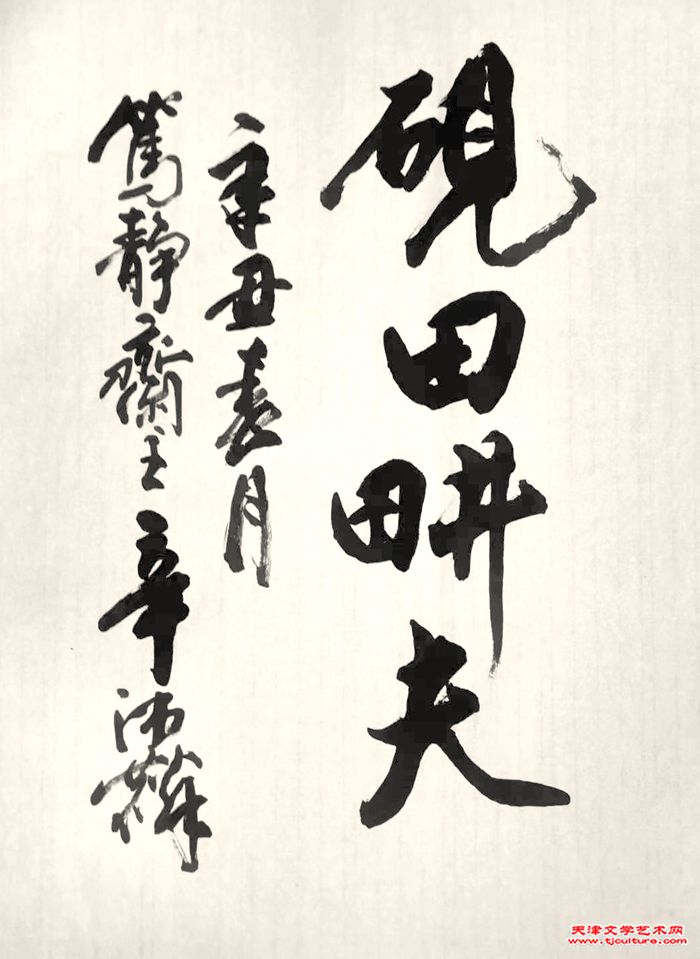 硯田畊夫
辛丑春月
篤靜齋主
天津文学艺术网
www.tjculture.com